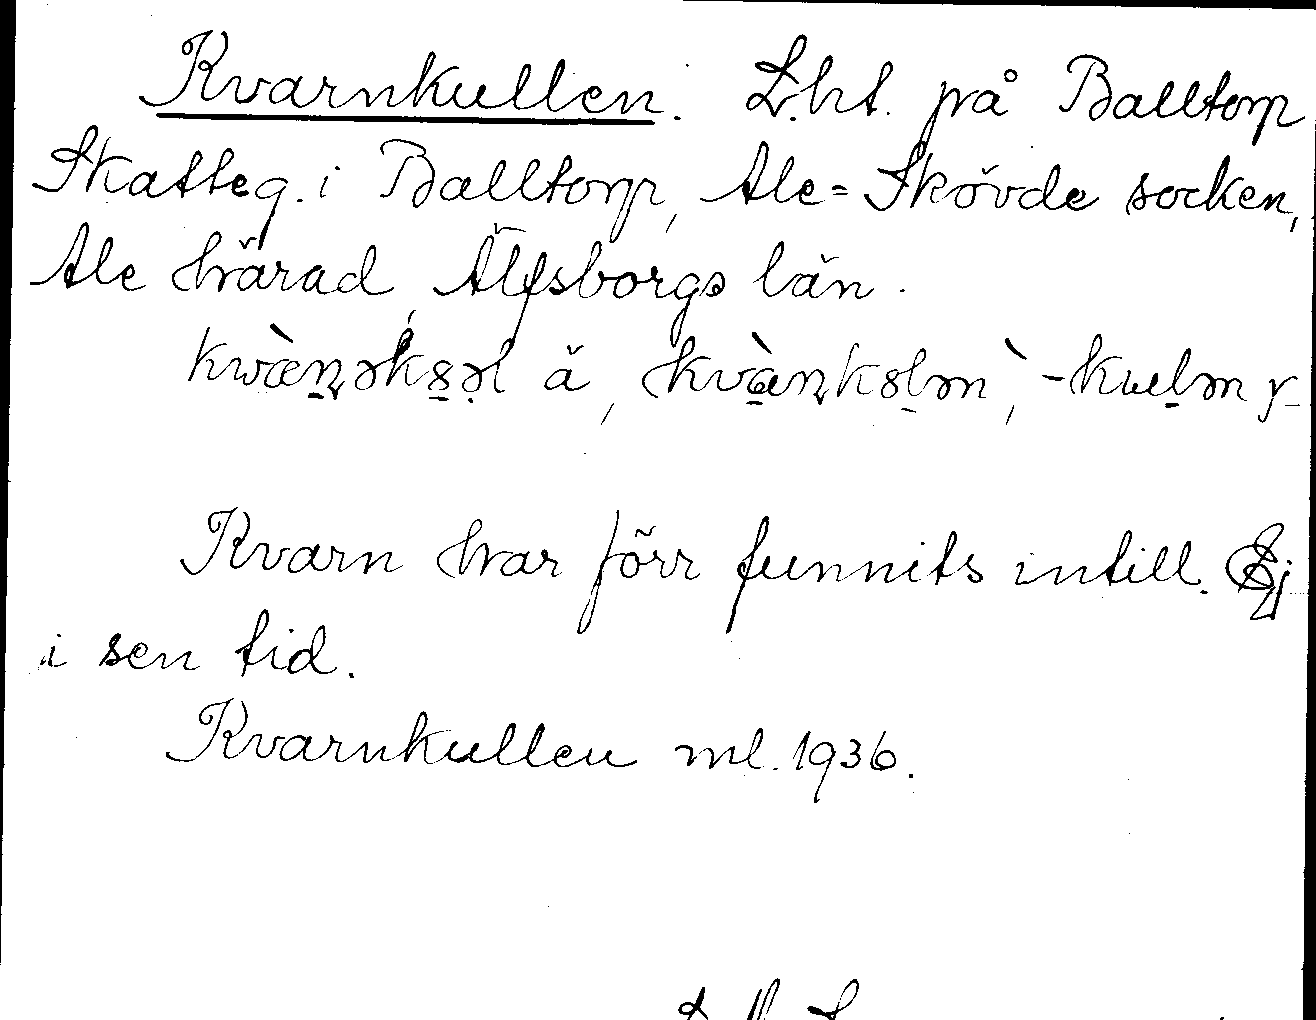 Kvarnkullen. L.ht. på Balltorp
Skatteg. i Balltorp, Ale-Skövde socken,
Ale härad, Älfsborgs län.
å, -
Kvarn har förr funnits intill. Ej
i sen tid.
Kvarnkullen ml. 1936.